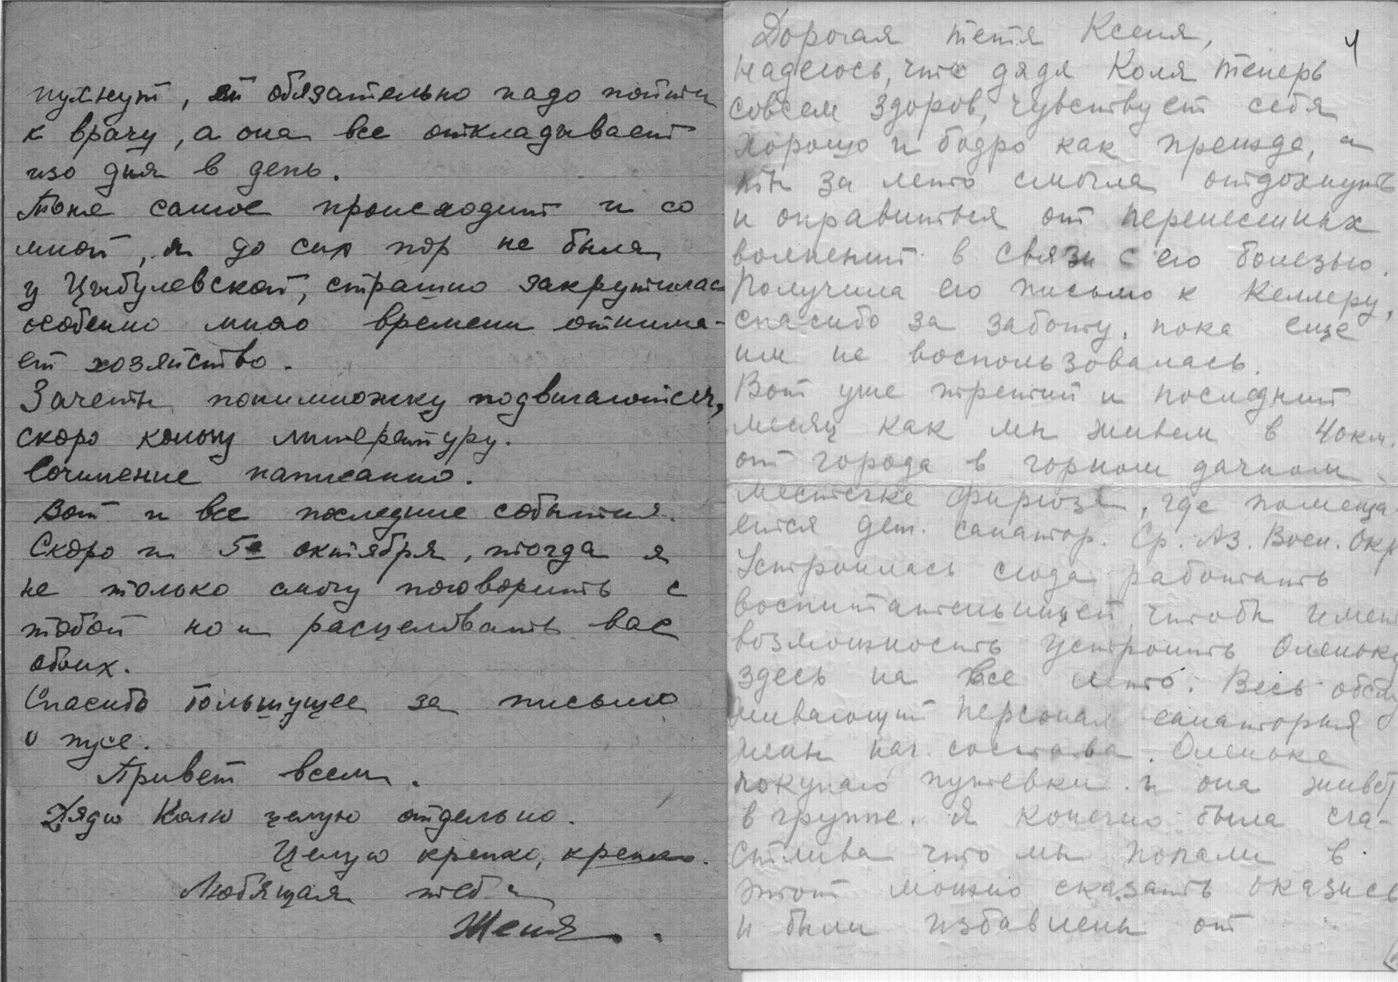 пухнут, ей обязательно надо пойти
к врачу, а она все откладывает
изо дня в день.
Тоже самое происходит и со
мной, я до сих пор не была
у Цыбулевской, страшно закрутилась
особенно много времени отнима-
ет хозяйство.
Зачеты понимножку подвигаются,
скоро кончу литературу.
Сочинение написанно.
Вот и все последние события.
Скоро и 5е октября, тогда я
не только смогу поговорить с
тобой но и расцеловать вас
обоих.
Спасибо большущее за письмо
о пусе.
Привет всем.
Дядю Колю целую отдельно.
Целую крепко, крепко.
Любящая тебя
Женя.
4
Дорогая тетя Ксеня,
Надеюсь, что дядя Коля теперь
совсем здоров, чувствует себя
хорошо и бодро как прежде, а
ты за лето смогла отдохнуть
и оправиться от перенесенных
волнений в связи с его болезью.
Получила его письмо к Келлеру,
спасибо за заботу, пока еще
им не воспользовалась.
Вот уже третий и последний
месяц как мы живем в 40км.
от города в горном дачном
местечке Фирюзе, где помеща
ется дет. санатор. Ср. Аз. Воен. Окр
Устроилась сюда работать
воспитательницей, чтобы имет
возможность устроить Оленьку
здесь на все лето. Весь обслу
живающий персонал санатория
жены нач. состава. Оленьке
покупаю путевки и она живет
в группе. Я конечно была сча-
стлива что мы попали в
этот можно сказать оазис
и были избавлены от